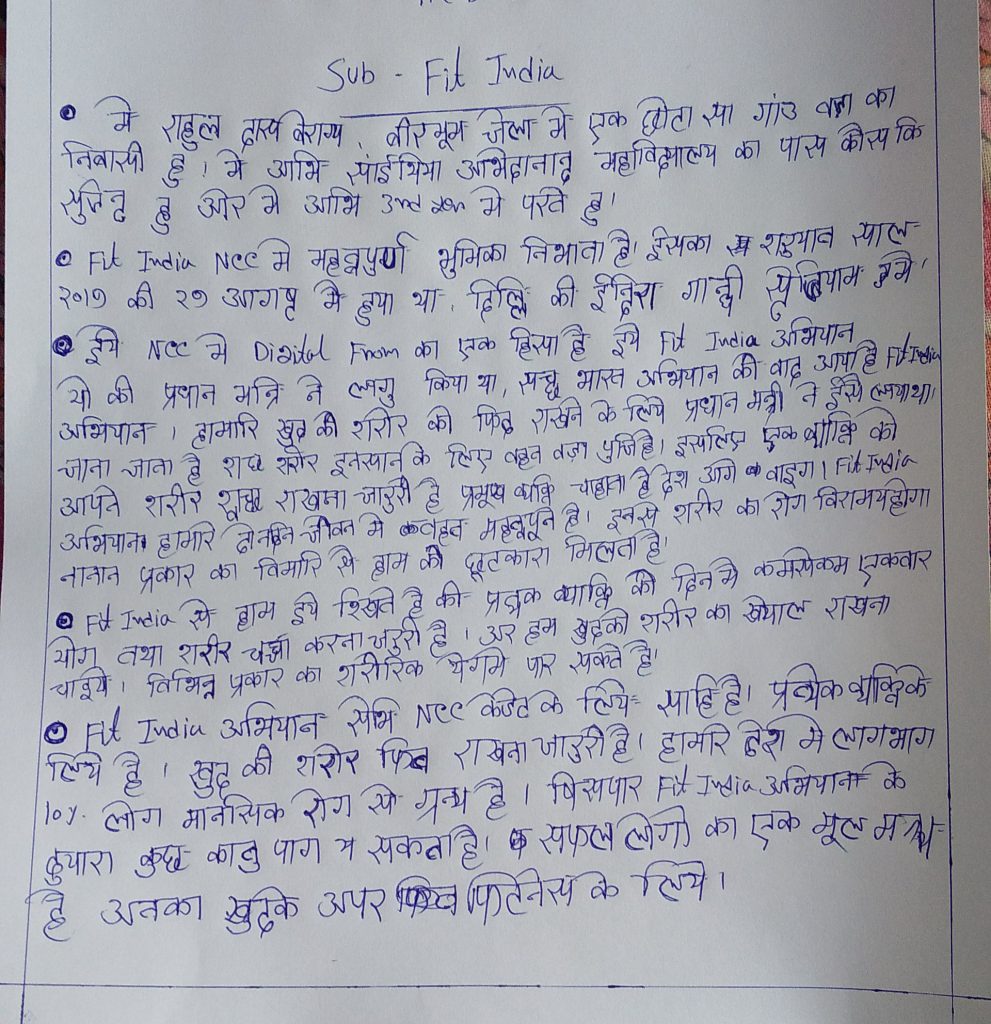 Sub - Fit India
• मे राहुल दास वैराग्य, बीरभूम जेला मे एक छोटा सा गांउ का
निवासी हु। मे आभि साँईथिया अभेदानान्द महाविद्यालय का पास कौस कि
सुडेन्ट हु ओर मे आभि 3rd sem मे परते हु।
• Fit India NCC मे महत्वपुर्ण भुमिका निभाता है। ईसका शुरुयात साल
२০१७ की २७ आगष्ट मे हुया था, दिल्लि की ईन्दिरा गान्धी स्टेडियाम मे।
• ईये NCC मे Digital From का एक हिसा है ईये Fit India अभियान
यो की प्रधान मन्त्रि ने लागु किया था, सच्छ भारत अभियान की बाद आया है Fit India
अभियान। हामारि खुद की शरीर को फिट राखने के लिये प्रधान मन्त्री ने ईसे लाया था।
जाना जाता है शरीर इनसान के लिए बहत बड़ा पुजि है। इसलिए एक ब्यक्ति को
आपने शरीर सच्छ राखना जारुरी है प्रमुख ब्यक्ति चाहाता है देश आगे बाड़ेगा। Fit India
अभियान हामारे दैनन्दिन जीवन मे बहत महत्वपून है। इनसे शरीर का रोग निरामय होगा
नानान प्रकार का बिमारि से हाम को छूटकारा मिलता है।
• Fit India से हाम इये शिखते है की प्रत्येक ब्यक्ति को दिन मे कमसेकम एकबार
योग तथा शरीर चर्चा करना जरुरी है। अर हम खुदको शरीर का खेयाल राखना
चाइये। बिभिन्न प्रकार का शरीरिक येगमे पार सकते है।
• Fit India अभियान सभि NCC केडेट के लिये साहि है। प्रत्येक ब्यक्तिके
लिये है। खुद की शरीर फिट राखना जारुरी है। हामारि देश मे लागभाग
10% लोग मानसिक रोग से ग्रस्थ है। Fit India अभियान के
दुयारा कुछ काबु पाया सकता है। सफल लोगो का एक मूल मन्त्र
है अनका खुदके अपर फिटनेस के लिये।